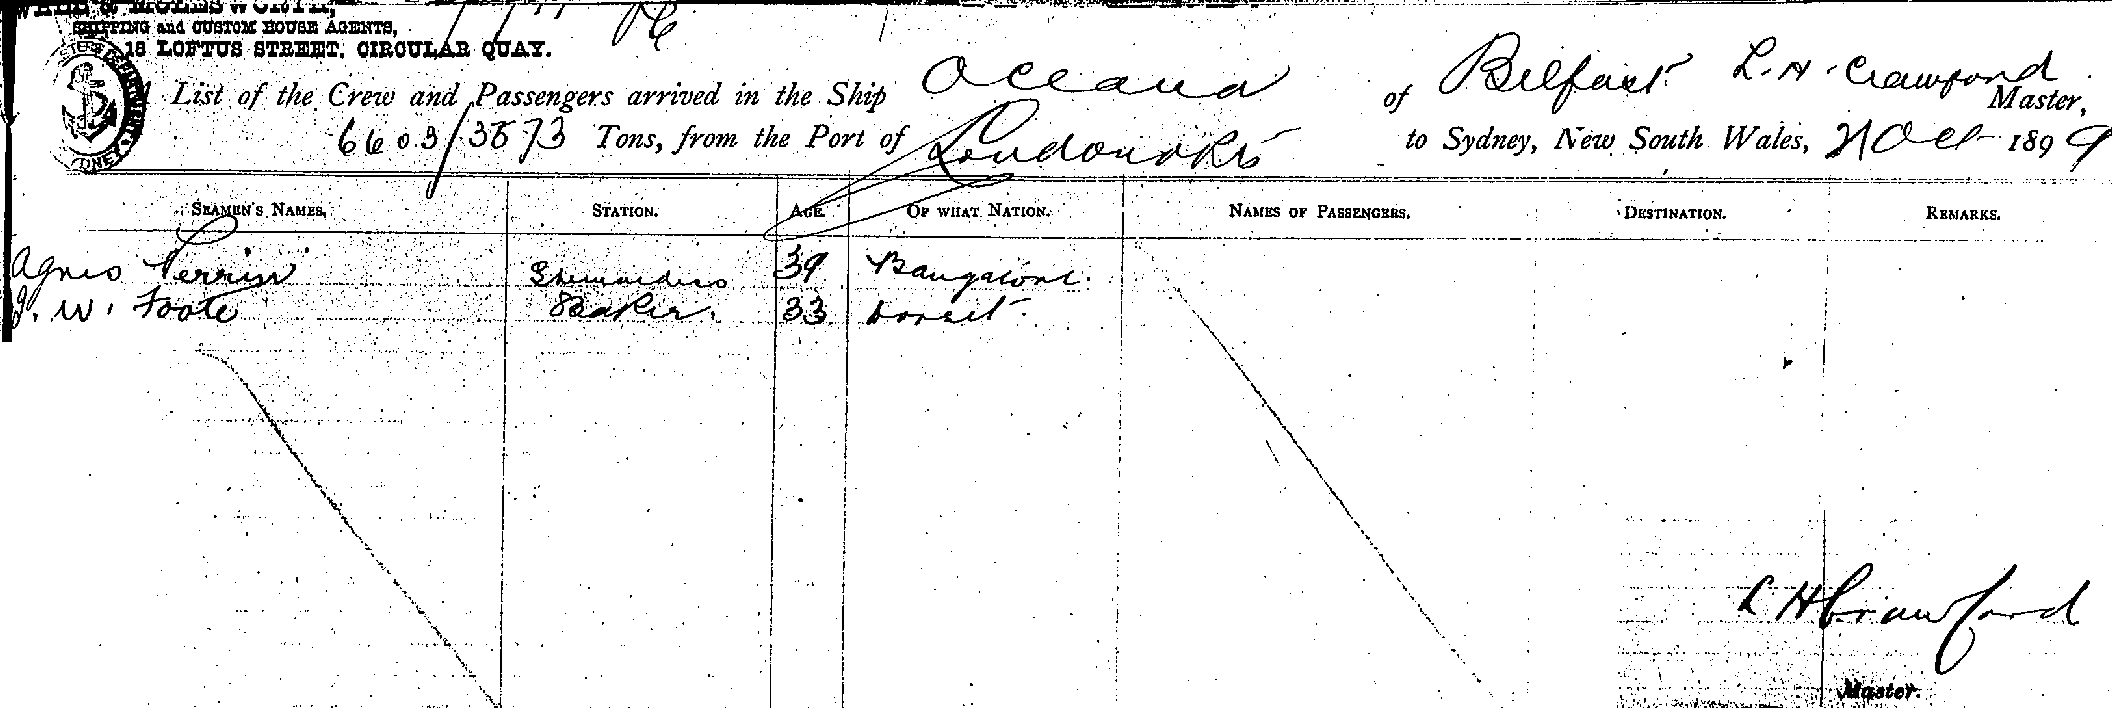 SHIPPING and CUSTOM HOUSE AGENTS,
18 LOFTUS STREET, CIRCULAR QUAY.
List of the Crew and Passengers arrived in the Ship Oceana of Belfast L. H. Crawford Master,
6603/3573 Tons, from the Port of London &c to Sydney, New South Wales, 21 Oct 1899
SEAMEN'S NAMES. STATION. AGE. OF WHAT NATION. NAMES OF PASSENGERS. DESTINATION. REMARKS.
Agnes Perrin Stewardess 39 Bangalore.
W. Foote Baker. 33 Dorset.
L H Crawford
Master.